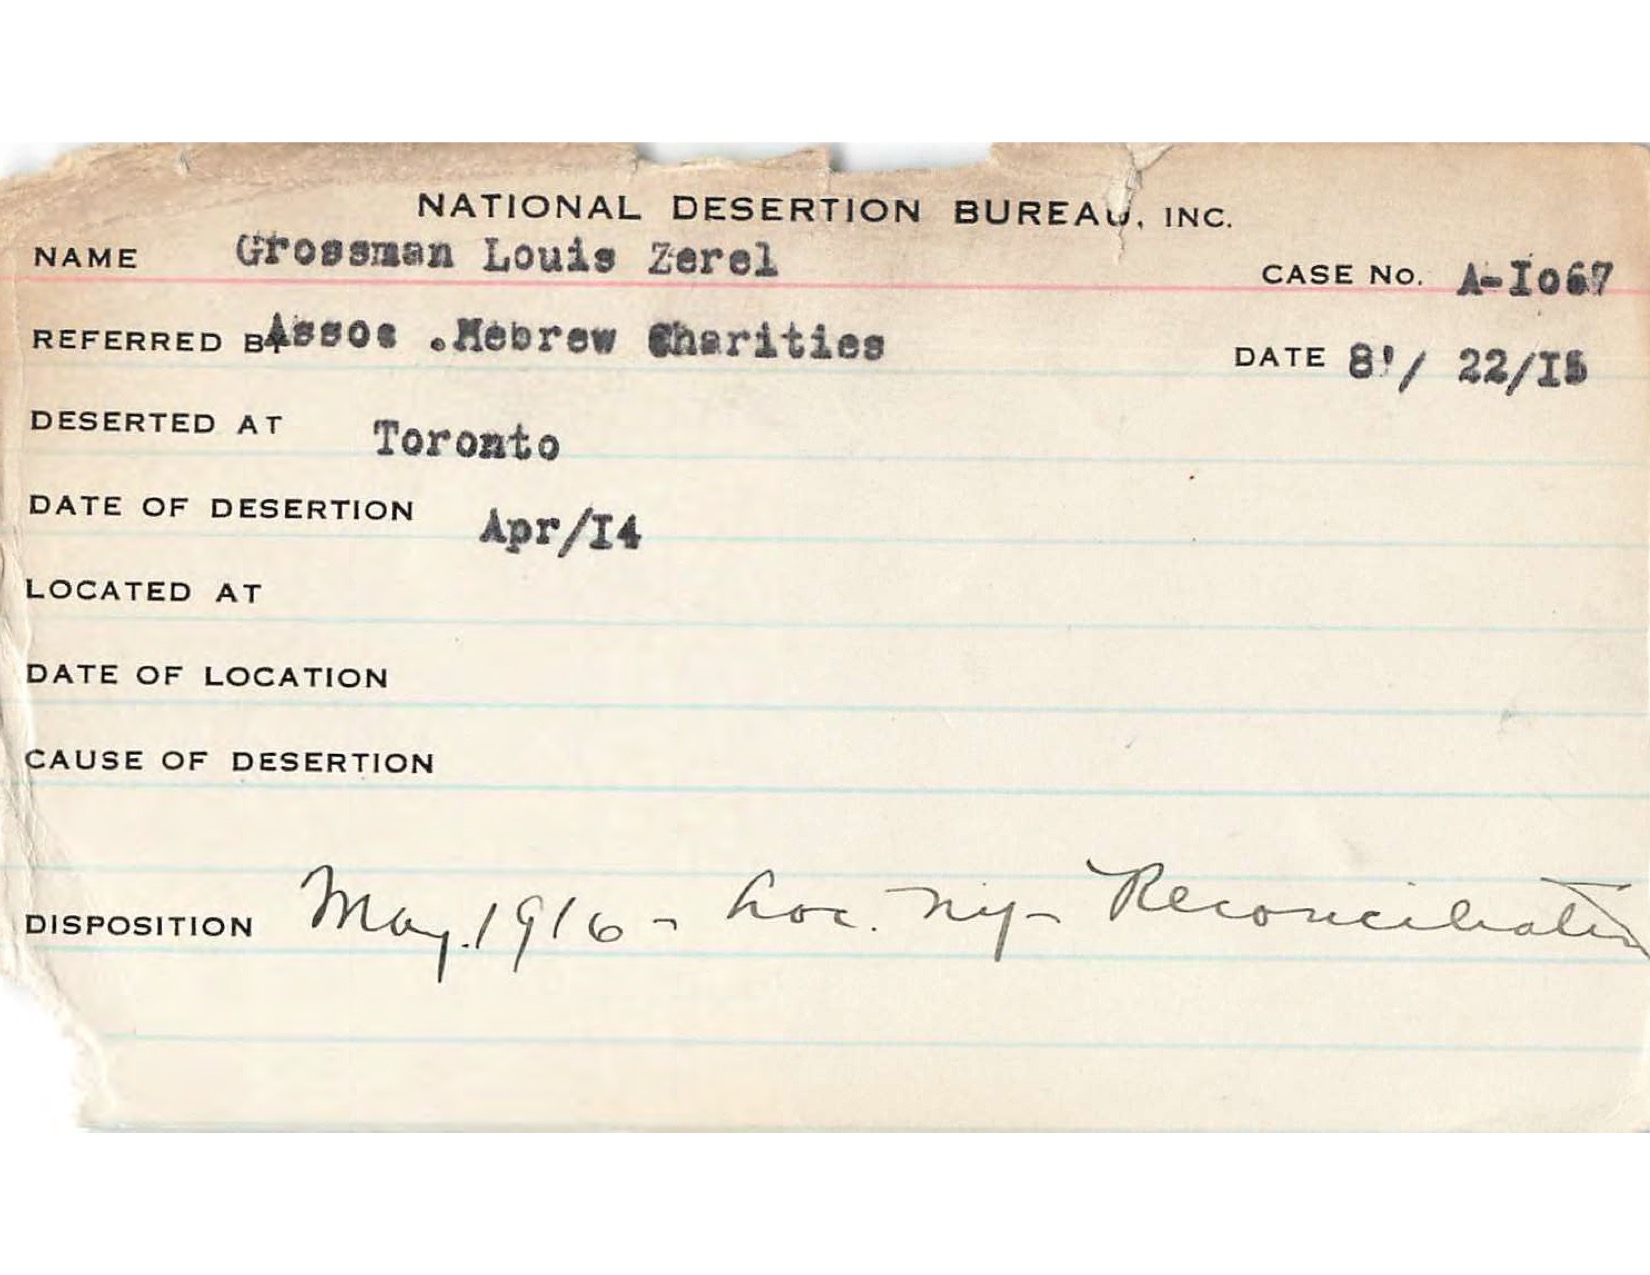 NATIONAL DESERTION BUREAU, INC.
NAME Grossman Louis Zerel
CASE No. A-Io67
REFERRED BY Assoc .Hebrew Charities
DATE 8'/ 22/I5
DESERTED AT Toronto
DATE OF DESERTION Apr/I4
LOCATED AT
DATE OF LOCATION
CAUSE OF DESERTION
DISPOSITION May.1916 - Loc. NY - Reconciliation